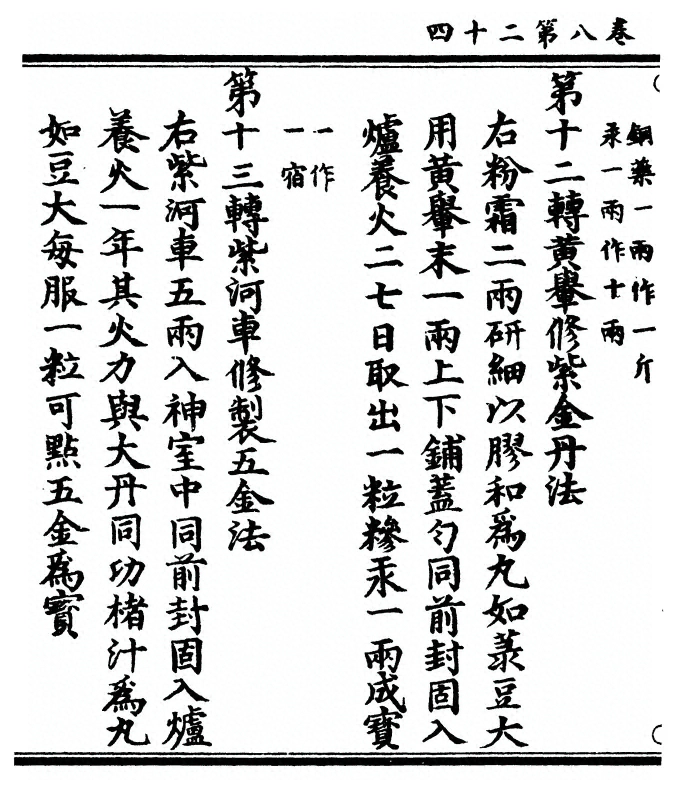 卷八第二十四
銅藥一兩作一斤
汞一兩作十兩
第十二轉黃轝修紫金丹法
右粉霜二兩研細以膠和爲丸如菉豆大
用黃轝末一兩上下鋪蓋勻同前封固入
爐養火二七日取出一粒糝汞一兩成寳
一作
一宿
第十三轉紫河車修製五金法
右紫河車五兩入神室中同前封固入爐
養火一年其火力與大丹同功楮汁爲丸
如豆大每服一粒可點五金爲寳